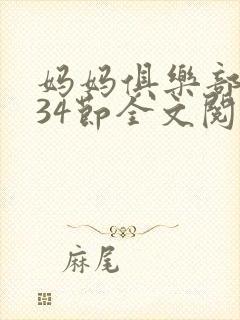 妈妈俱樂部
34節全文閱
麻尾